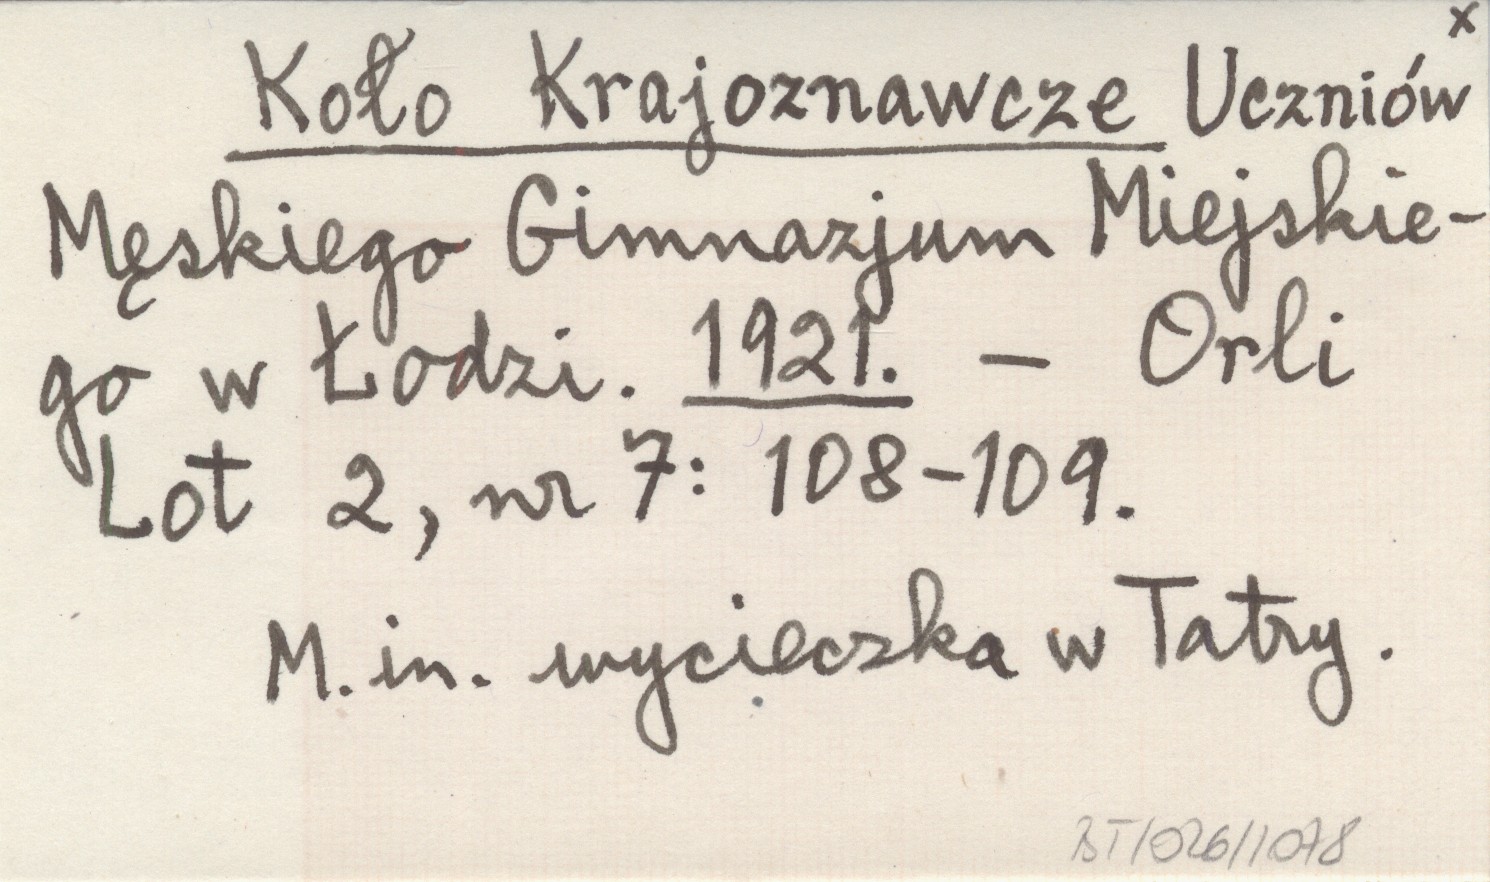 x
Koło Krajoznawcze Uczniów
Męskiego Gimnazjum Miejskie-
go w Łodzi. 1921. — Orli
Lot 2, nr 7: 108-109.
M. in. wycieczka w Tatry.
BT/026/1078